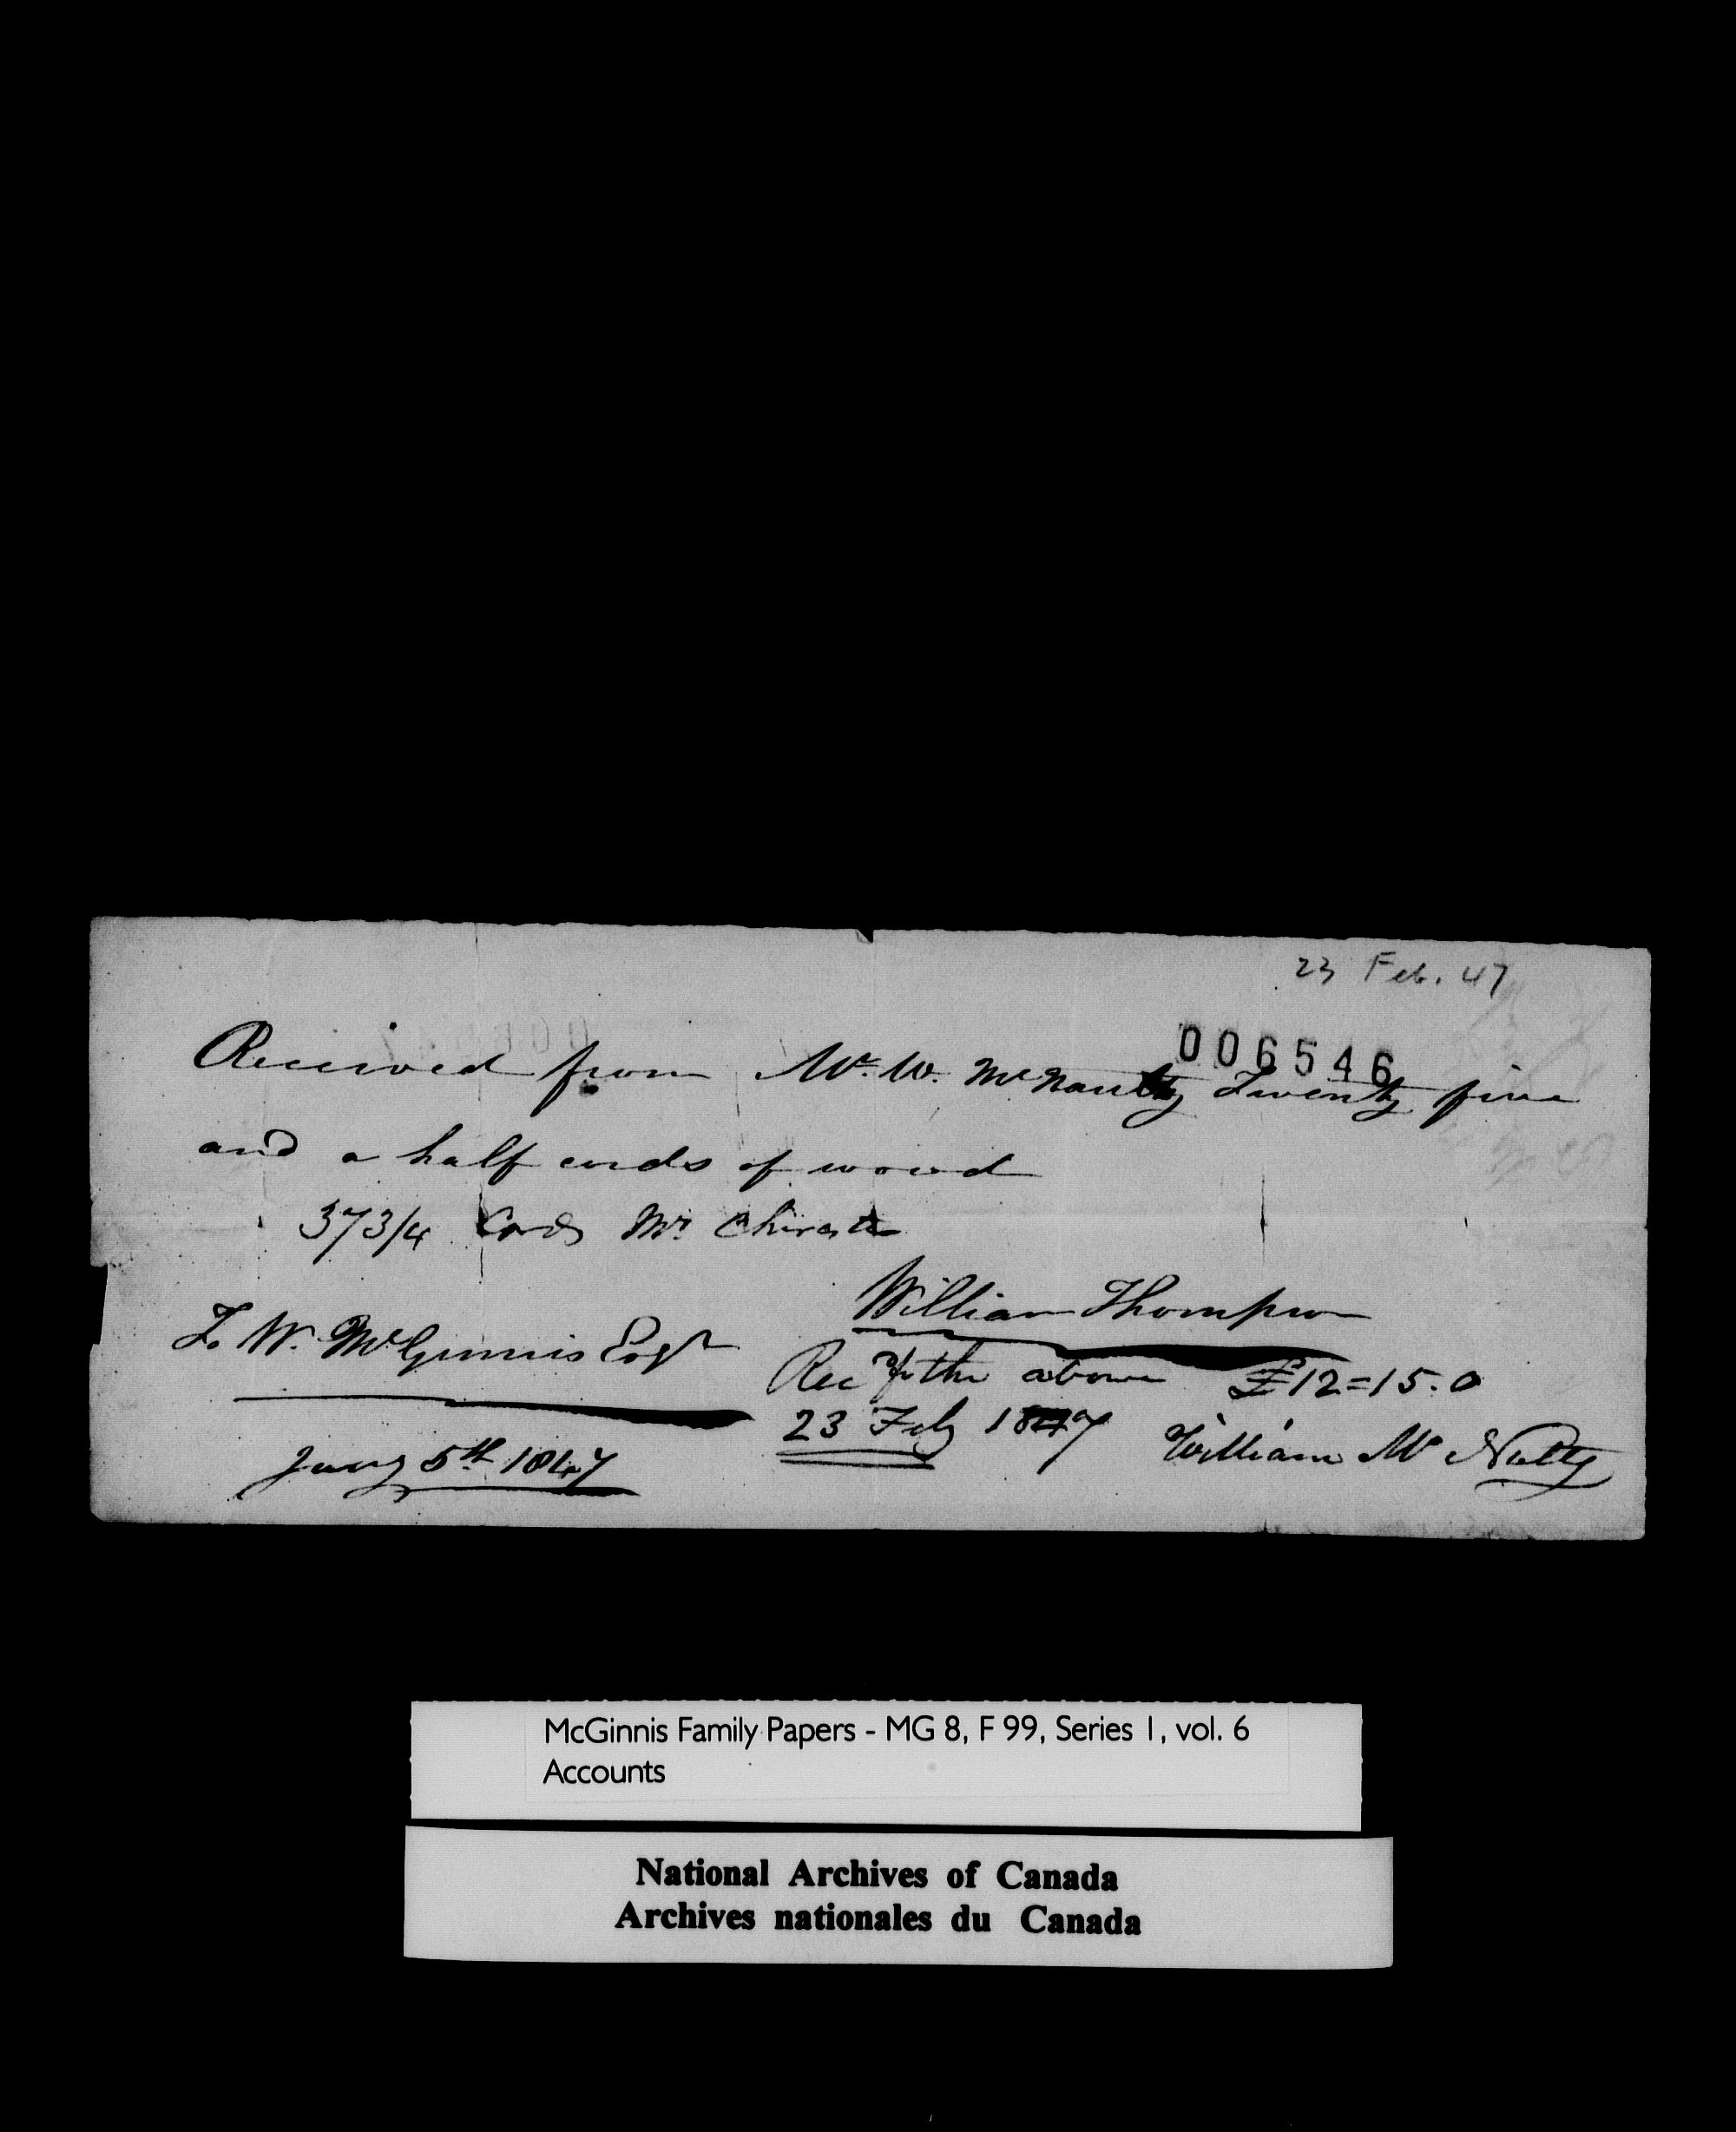 23 Feb. 47
006546
Received from Mr. W. McNaulty Twenty five
and a half cords of wood
37 3/4 Cords Mr
William Thompson
To W. McGinnis Esqr
Rec for the above £12=15.0
23 Feby 1847 William Mc Nulty
Jany 5th 1847
McGinnis Family Papers - MG 8, F 99, Series 1, vol. 6
Accounts
National Archives of Canada
Archives nationales du Canada